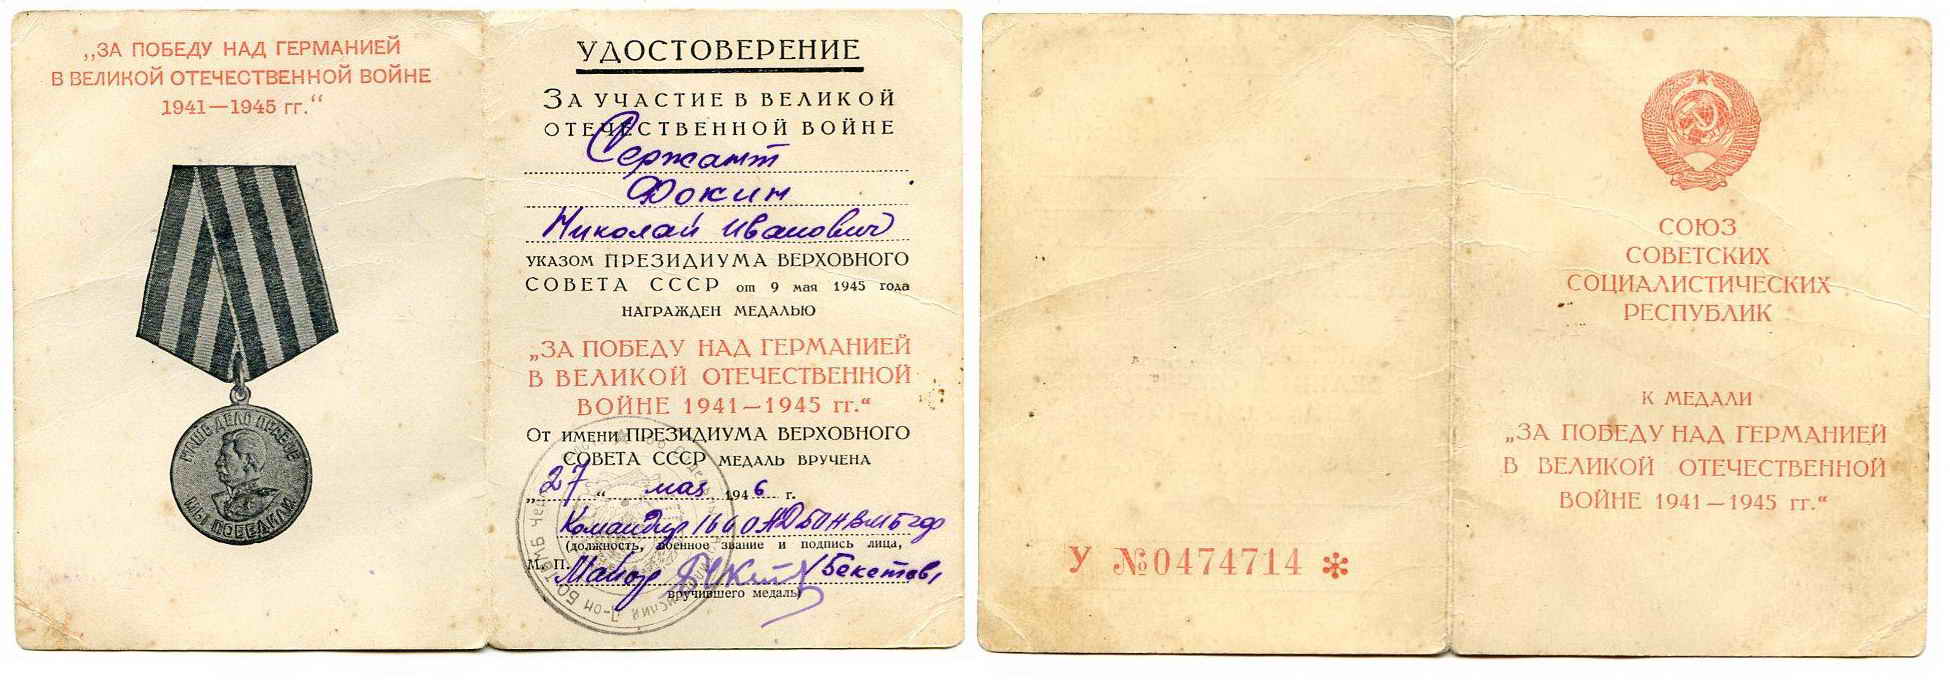 „ЗА ПОБЕДУ НАД ГЕРМАНИЕЙ
В ВЕЛИКОЙ ОТЕЧЕСТВЕННОЙ ВОЙНЕ
1941—1945 гг.“
НАШЕ ДЕЛО ПРАВОЕ
МЫ ПОБЕДИЛИ
УДОСТОВЕРЕНИЕ
ЗА УЧАСТИЕ В ВЕЛИКОЙ
ОТЕЧЕСТВЕННОЙ ВОЙНЕ
Сержант
Фокин
Николай Иванович
УКАЗОМ ПРЕЗИДИУМА ВЕРХОВНОГО
СОВЕТА СССР от 9 мая 1945 года
НАГРАЖДЕН МЕДАЛЬЮ
„ЗА ПОБЕДУ НАД ГЕРМАНИЕЙ
В ВЕЛИКОЙ ОТЕЧЕСТВЕННОЙ
ВОЙНЕ 1941—1945 гг.“
ОТ ИМЕНИ ПРЕЗИДИУМА ВЕРХОВНОГО
СОВЕТА СССР МЕДАЛЬ ВРУЧЕНА
„27“ мая 1946 г.
Командир 160
(должность, военное звание и подпись лица,
М. П. Майор (Бекетов)
вручившего медаль)
СОЮЗ
СОВЕТСКИХ
СОЦИАЛИСТИЧЕСКИХ
РЕСПУБЛИК
К МЕДАЛИ
„ЗА ПОБЕДУ НАД ГЕРМАНИЕЙ
В ВЕЛИКОЙ ОТЕЧЕСТВЕННОЙ
ВОЙНЕ 1941—1945 гг.“
У №0474714 *